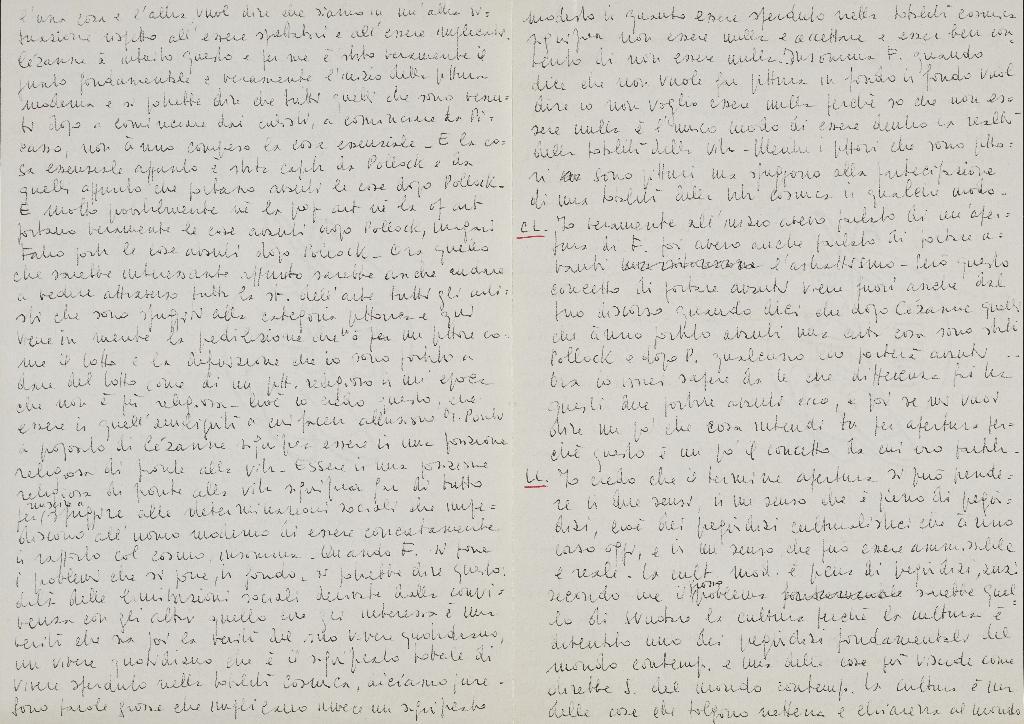 l'una cosa e l'altra vuol dire che siamo in un'altra si-
tuazione rispetto all'essere spettatori e all'essere implicati.
Cézanne à intuito questo e per me è stato veramente il
punto fondamentale e veramente l'inizio della pittura
moderna e si potrebbe dire che tutti quelli che sono venu-
ti dopo a cominciare dai cubisti, a cominciare da Pi-
casso, non ànno compreso la cosa essenziale - E la co-
sa essenziale appunto è stata capita da Pollock e da
quelli appunto che portano avanti le cose dopo Pollock -
E molto probabilmente né la pop art né la op art
portano veramente le cose avanti dopo Pollock, magari
Fabro porta le cose avanti dopo Pollock - Ora quello
che sarebbe interessante appunto sarebbe anche andare
a vedere attraverso tutta la st. dell'arte tutti gli arti-
sti che sono sfuggiti alla categoria pittorica e qui
viene in mente la predilezione che ò per un pittore co-
me il Lotto e la definizione che io sono portato a
dare del Lotto come di un pitt. religioso in un'epoca
che non è più religiosa - Cioè io credo questo, che
essere in quell'ambiguità a cui faceva allusione M. Ponty
a proposito di Cézanne significa essere in una posizione
religiosa di fronte alla vita - Essere in una posizione
religiosa di fronte alla vita significa far di tutto
per riuscire a sfuggire alle determinazioni sociali che impe-
discono all'uomo moderno di essere concretamente
in rapporto col cosmo, insomma - Quando F. si pone
i problemi che si pone, in fondo, si potrebbe dire questo:
delle limitazioni sociali derivate dalla convi-
venza con gli altri quello che gli interessa è una
verità che sia poi la verità del suo vivere quotidiano,
un vivere quotidiano che è il significato totale di
vivere sperduto nella totalità cosmica, diciamo pure -
Sono parole grosse che implicano invece un significato
modesto in quanto essere sperduto nella totalità cosmica
significa non essere nulla e accettare e esser ben con-
tento di non essere nulla - Insomma F. quando
dice che non vuole far pittura in fondo in fondo vuol
dire io non voglio essere nulla perché so che non es-
sere nulla è l'unico modo di essere dentro la realtà
della totalità della vita - Mentre i pittori che sono pitto-
ri sono pittori ma sfuggono alla partecipazione
di una totalità della vita cosmica in qualche modo -
CL. Io veramente all'inizio avevo parlato di un'aper-
tura di F. poi avevo anche parlato di portare a-
vanti l'astrattismo - Però questo
concetto di portare avanti viene fuori anche dal
tuo discorso quando dici che dopo Cézanne quelli
che ànno portato avanti una certa cosa sono stati
Pollock e dopo P. qualcuno lo porterà avanti ...
Ora io vorrei sapere da te che differenza fai tra
questi due portare avanti ecco, e poi se mi vuoi
dire un po' che cosa intendi tu per apertura per-
ché questo è un po' il concetto da cui ero partita -
LL. Io credo che il termine apertura si può prende-
re in due sensi, in un senso che è pieno di pregiu-
dizi, cioè dei pregiudizi culturalistici che ànno
corso oggi, e in un senso che può essere ammissibile
e reale. La cult. mod. è piena di pregiudizi, anzi
secondo me il grosso problema sarebbe quel-
lo di svuotare la cultura perché la cultura è
diventata uno dei pregiudizi fondamentali del
mondo contemp. e una delle cose più viscide come
direbbe S. del mondo contemp. La cultura è una
delle cose che tolgono nettezza e chiarezza al mondo